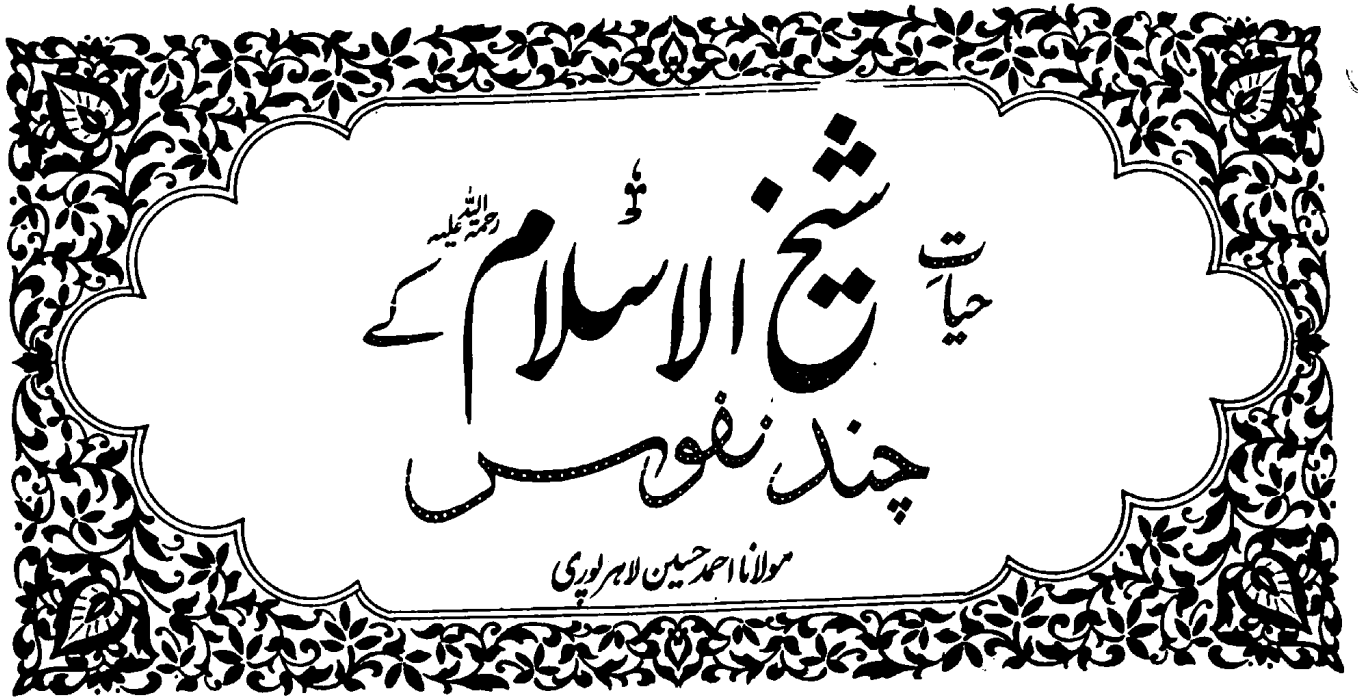 حیاتِ شیخ الاسلام رحمۃ اللہ علیہ کے
چند نفوس
مولانا احمد حسین لاہرپوری